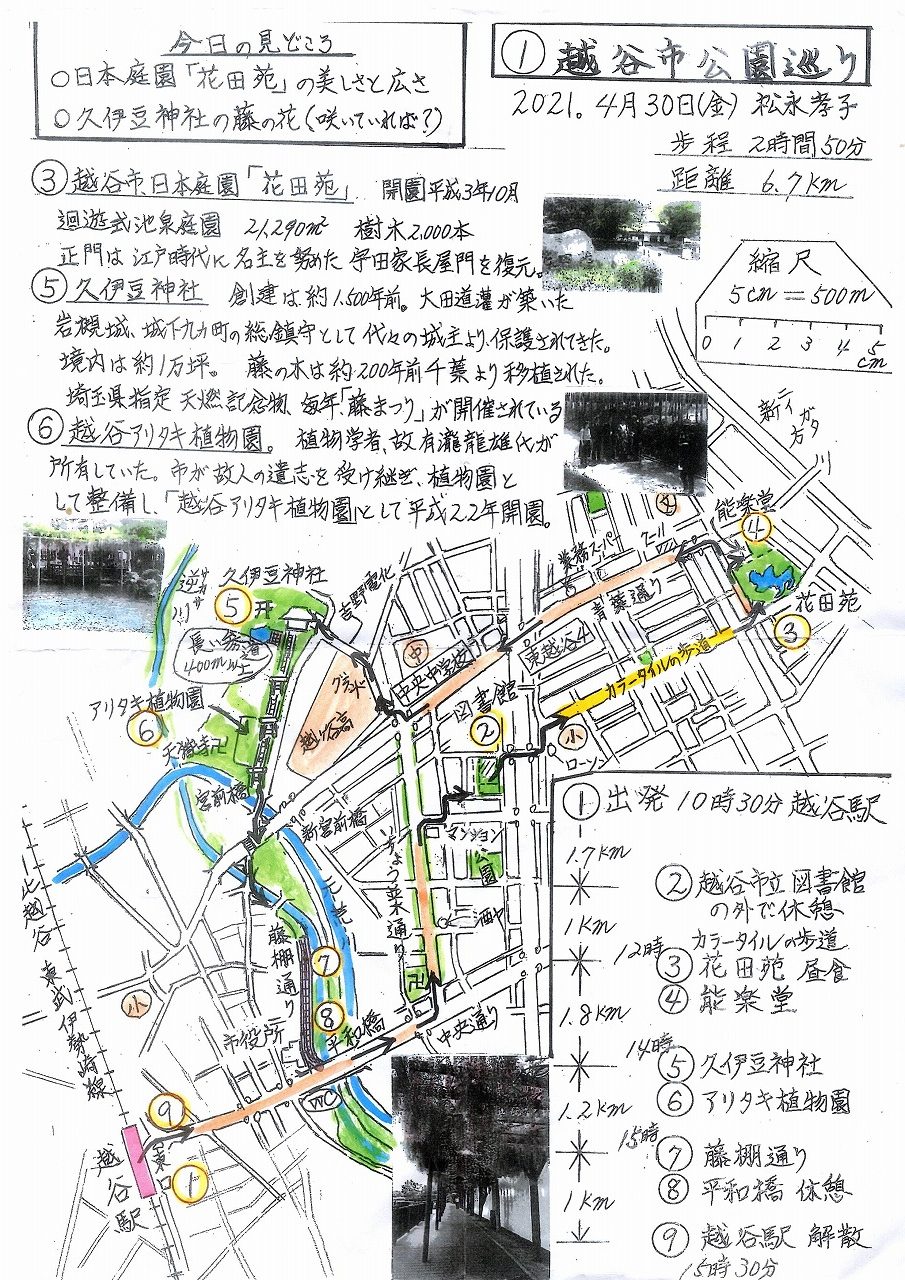 今日の見どころ
○日本庭園「花田苑」の美しさと広さ
○久伊豆神社の藤の花(咲いていれば?)
① 越谷市公園巡り
2021. 4月30日(金) 松永孝子
歩程 2時間50分
距離 6.7km
③ 越谷市日本庭園「花田苑」 開園平成3年10月
迴遊式池泉庭園 21,290m² 樹木2,000本
正門は江戸時代に名主を努めた宇田家長屋門を復元。
⑤ 久伊豆神社 創建は約1.500年前。太田道灌が築いた
岩槻城、城下九ヵ町の総鎮守として代々の城主より、保護されてきた。
境内は約1万坪。 藤の木は約200年前千葉より移植された。
埼玉県指定 天燃記念物、毎年「藤まつり」が開催されている
⑥ 越谷アリタキ植物園。 植物学者、故有瀧龍雄代が
所有していた。市が故人の遺志を受け継ぎ、植物園と
して整備し、「越谷アリタキ植物園」として平成22年開園。
縮尺
5cm=500m
0 1 2 3 4 5
cm
新
方
川
能楽堂
④
文
花田苑
③
青葉通り
東越谷4
カラータイルの歩道
久伊豆神社
⑤
長い参道
400m以上
グランド
越ケ谷高
中
中央中学校
図書館
②
小
ローソン
アリタキ植物園
⑥
天嶽寺卍
宮前橋
新宮前橋
元荒川
いちょう並木通り
マンション
公園
酒や
卍
北越谷
東武伊勢崎線
小
藤棚通り
⑦
⑧
市役所
平和橋
中央通り
WC
⑨
東口
①
越谷駅
① 出発 10時30分 越谷駅
1.7km
② 越谷市立図書館
の外で休憩
1km
カラータイルの歩道
12時
③ 花田苑 昼食
④ 能楽堂
1.8km
14時
⑤ 久伊豆神社
⑥ アリタキ植物園
1.2km
15時
⑦ 藤棚通り
⑧ 平和橋 休憩
1km
⑨ 越谷駅 解散
15時30分